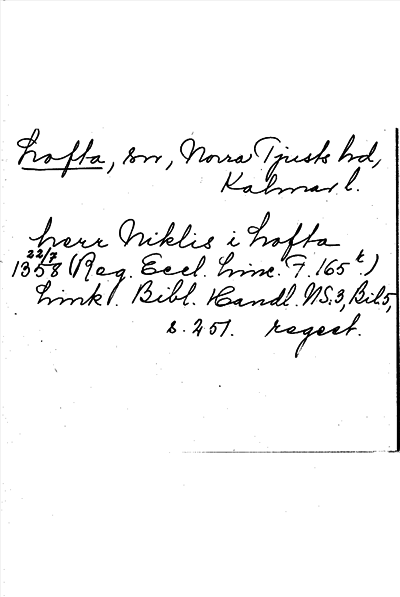 Lofta, sn, Norra Tjusts hd,
Kalmar l.
herr Niklis i Lofta
22/7
1358 (Reg. Eccl. Linc. F. 165 r.)
Link. Bibl. Handl. NS:3, Bil 5,
s. 251. regest.